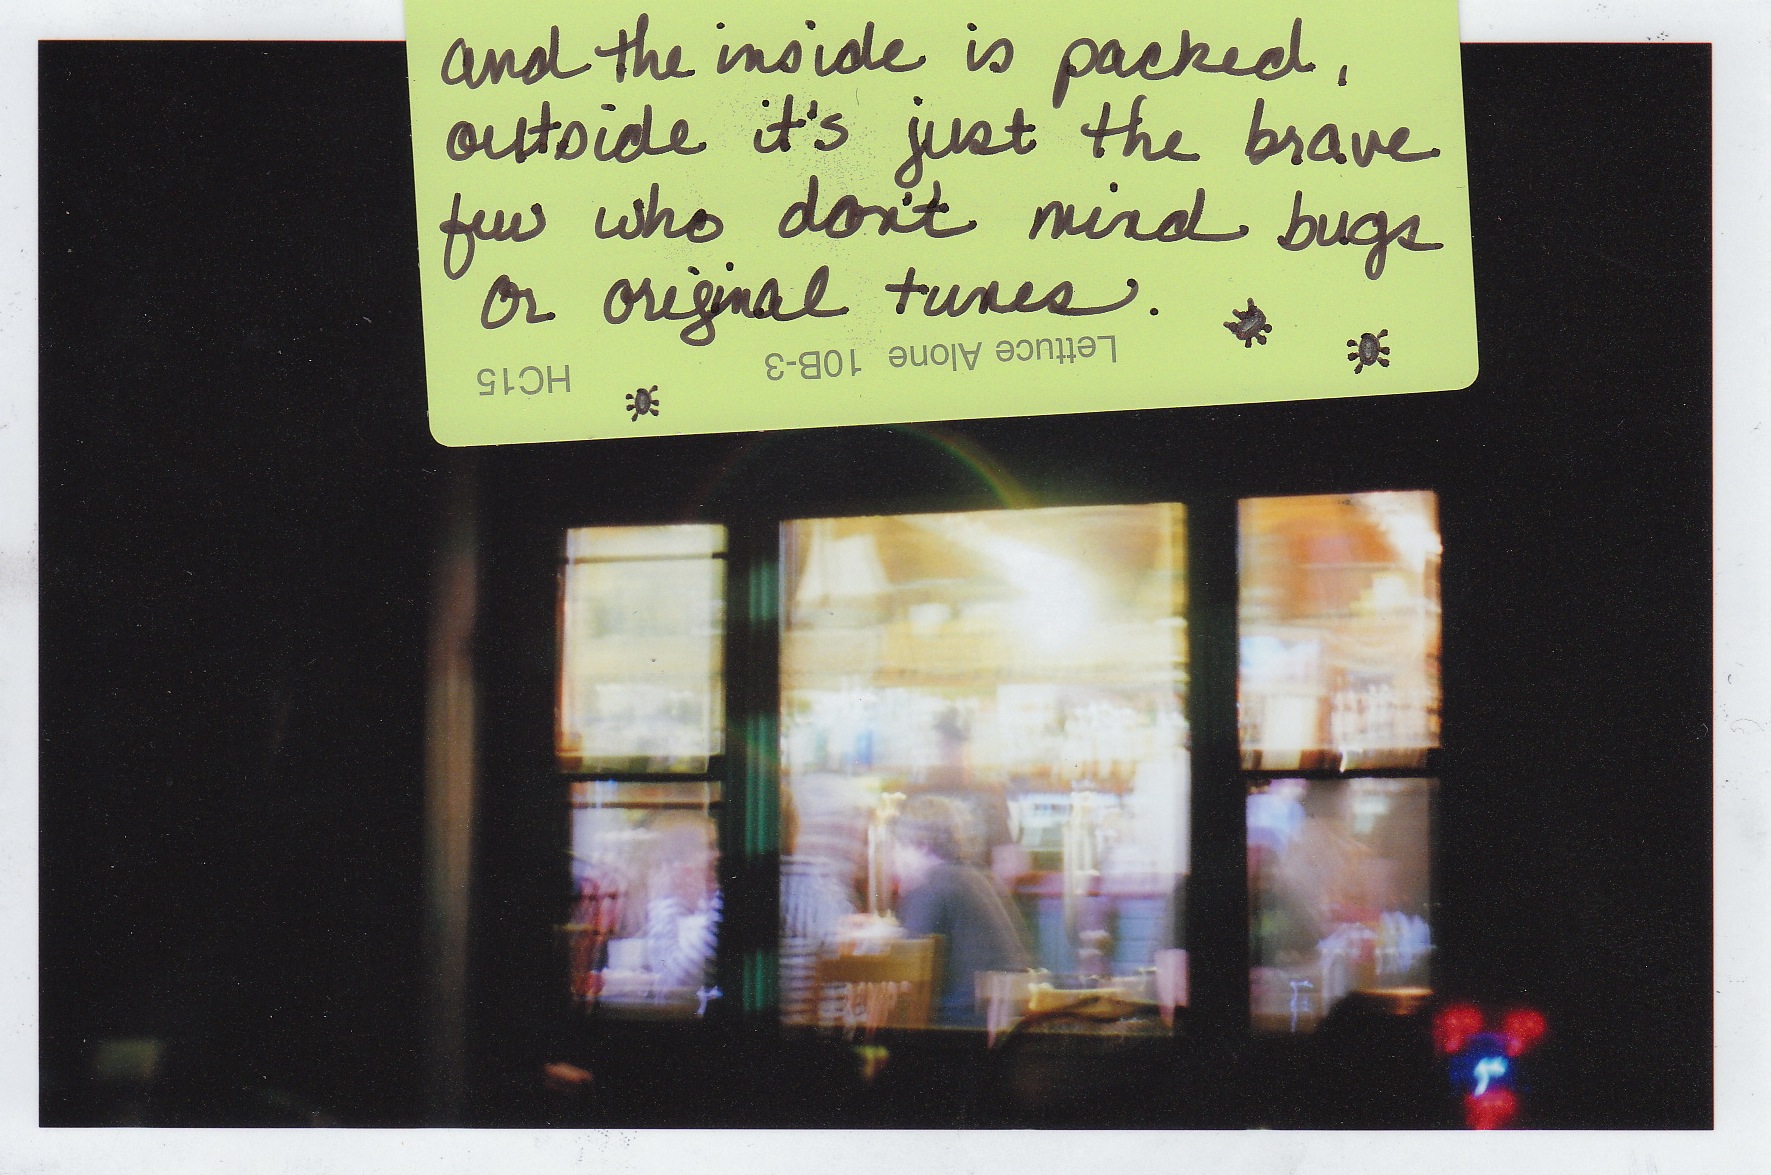 and the inside is packed,
outside it's just the brave
few who don't mind bugs
or original tunes.
Lettuce Alone 10B-3 HC15